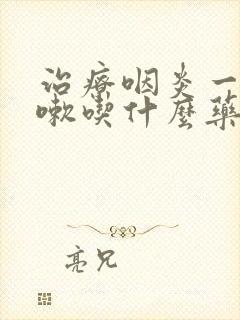 治疗咽炎一
嗽喫什麼藥
亮兄